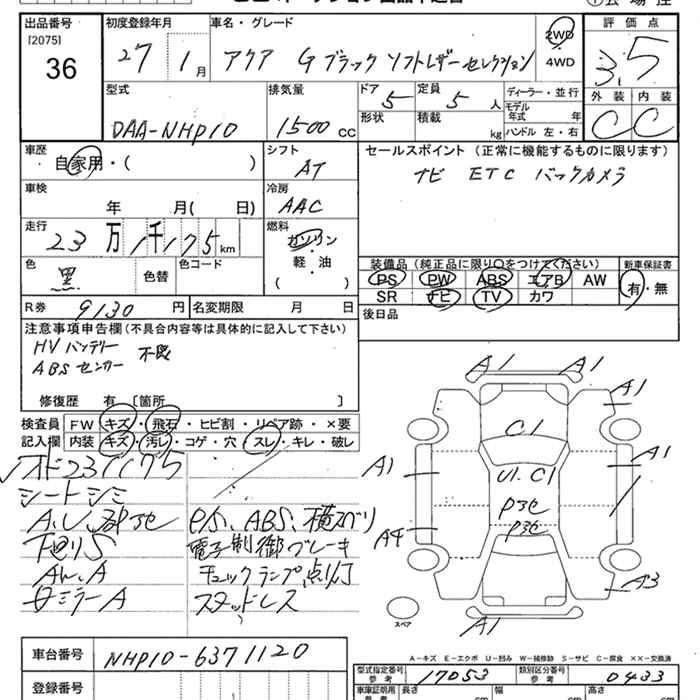 出品番号 初度登録年月 車名・グレード 評価点
[2075]
36 27 1月 アクア Gブラックソフトレザーセレクション 2WD 3.5
4WD
型式 排気量 ドア 定員 ディーラー・並行 外装 内装
DAA-NHP10 1500cc 5 5人 モデル年式 年 C C
形状 積載 kg ハンドル 左・右
車歴 シフト セールスポイント (正常に機能するものに限ります)
自家用・( ) AT ナビ ETC バックカメラ
車検 冷房
年 月( 日) AAC
走行 燃料
23万1千175km ガソリン
・
軽・油
( )
装備品 (純正品に限り○をつけてください) 新車保証書
色 色替 色コード PS PW ABS エアB AW 有・無
黒 SR ナビ TV カワ
R券 9130円 名変期限 月 日 後日品
注意事項申告欄 (不具合内容等は具体的に記入して下さい)
HVバッテリー 不良
ABSセンサー
修復歴 有 [箇所 ]
検査員 FW キズ・飛石・ヒビ割・リペア跡・×要
記入欄 内装 キズ・汚レ・コゲ・穴・スレ・キレ・破レ
231175
シートシミ
PS、ABS、横スベリ
下廻りS 電子制御ブレーキ
チェックランプ点灯
スタッドレス
A1 A1
A1
C1
A1 U1.C1 A1
P3セ
P3セ
A4
A3
A1
スペア
A-キズ E-エクボ U-凹み W-補修跡 S-サビ C-腐食 XX-交換済
車台番号 NHP10-6371120
型式指定番号 参考 17053 類別区分番号 参考 0433
登録番号 車庫証明用 参考 長さ cm 幅 cm 高さ cm